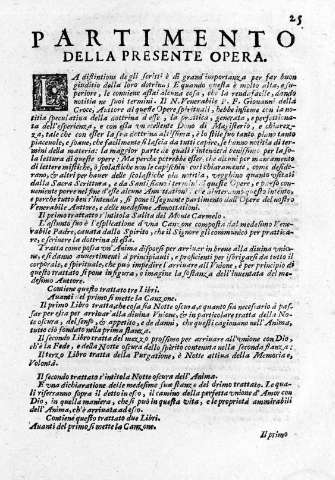 25
PARTIMENTO
DELLA PRESENTE OPERA.
LA distintione degli scritti è di grand'importanza per far buon
giuditio della loro dottrina: E quando questa è molto alta, e su-
periore, le conviene assai alcuna cosa, che la renda facile, dando
notitia ne' suoi termini. Il N. Venerabile P. F. Giovanni della
Croce, Auttore di queste Opere spirituali, hebbe insieme con la noti-
tia speculativa della dottrina d'essa, la pratica, generata, e perfettiona-
ta dell'esperienza, e con essa un eccellente Dono di Magisterio, e chiarez-
za, tale che con esser la sua dottrina altissima, è lo stile suo tanto piano tanto
piacevole, e soave, che facilmente si lascia da tutti capire, se hanno notitia di ter-
mini della materia: la maggior parte di quali s'intende
lettura di queste opere. Ma perche potrebbe esser che alcuni per mancamento
di lettere mistiche, ò scolastiche non le capischino così chiaramente, come deside-
rano, &
dalla Sacra Scrittura, e da Santi
e perche tutto ben s'intenda, si pone il seguente partimento dell'Opere del nostro
Venerabile Auttore, e delle medesime Annotationi.
Il primo trattato s'intitola Salita del Monte Carmelo.
L'assunto suo è l'esplicatione d'una Canzone composta dal medesimo Venera-
bile Padre, cavata dallo Spirito, che il Signore li communicò per pratticare,
e scrivere la dottrina di essa.
Tratta come possa un'Anima disporsi per arrivar in breve alla divina unio-
ne, e si danno avvertimenti a' principianti, e proficienti per isbrigarsi da tutto il
corporale, e spirituale, che può impedire l'arrivare all'Unione; è per principio di
questo trattato si pone in figura, e imagine la sostanza dell'inventata del mede-
simo Auttore.
Contiene questo trattato tre Libri.
Avanti del primo si mette la Canzone.
Il primo Libro tratta che cosa sia Notte oscura, e quanto sia necessario à pas-
sar per essa per arrivar alla divina Unione, & in particolare tratta della Not-
te oscura, del senso, & appetito, e de danni, che questi cagionano nell'Anima,
tutto ciò fondato nella prima stanza:
Il secondo Libro tratta del mezzo prossimo per arrivare all'unione con Dio,
ch'è la Fede, e della Notte oscura dello spirito contenuta nella seconda stanza:
Il terzo Libro tratta della Purgatione, è Notte attiva della Memoria, e
Volontà.
Il secondo trattato s'intitola Notte oscura dell'Anima.
E' una dichiaratione delle medesime sue stanze del primo trattato. Le qua-
li risserranno sopra il detto in esso, il camino della perfetta unione d'Amor con
Dio, in quella maniera, che si può in questa vita, e le proprietà ammirabili
dell'Anima, ch'è arrivata ad esso.
Contiene questo trattato due Libri.
Avanti del primo si mette la Canzone.
Il primo